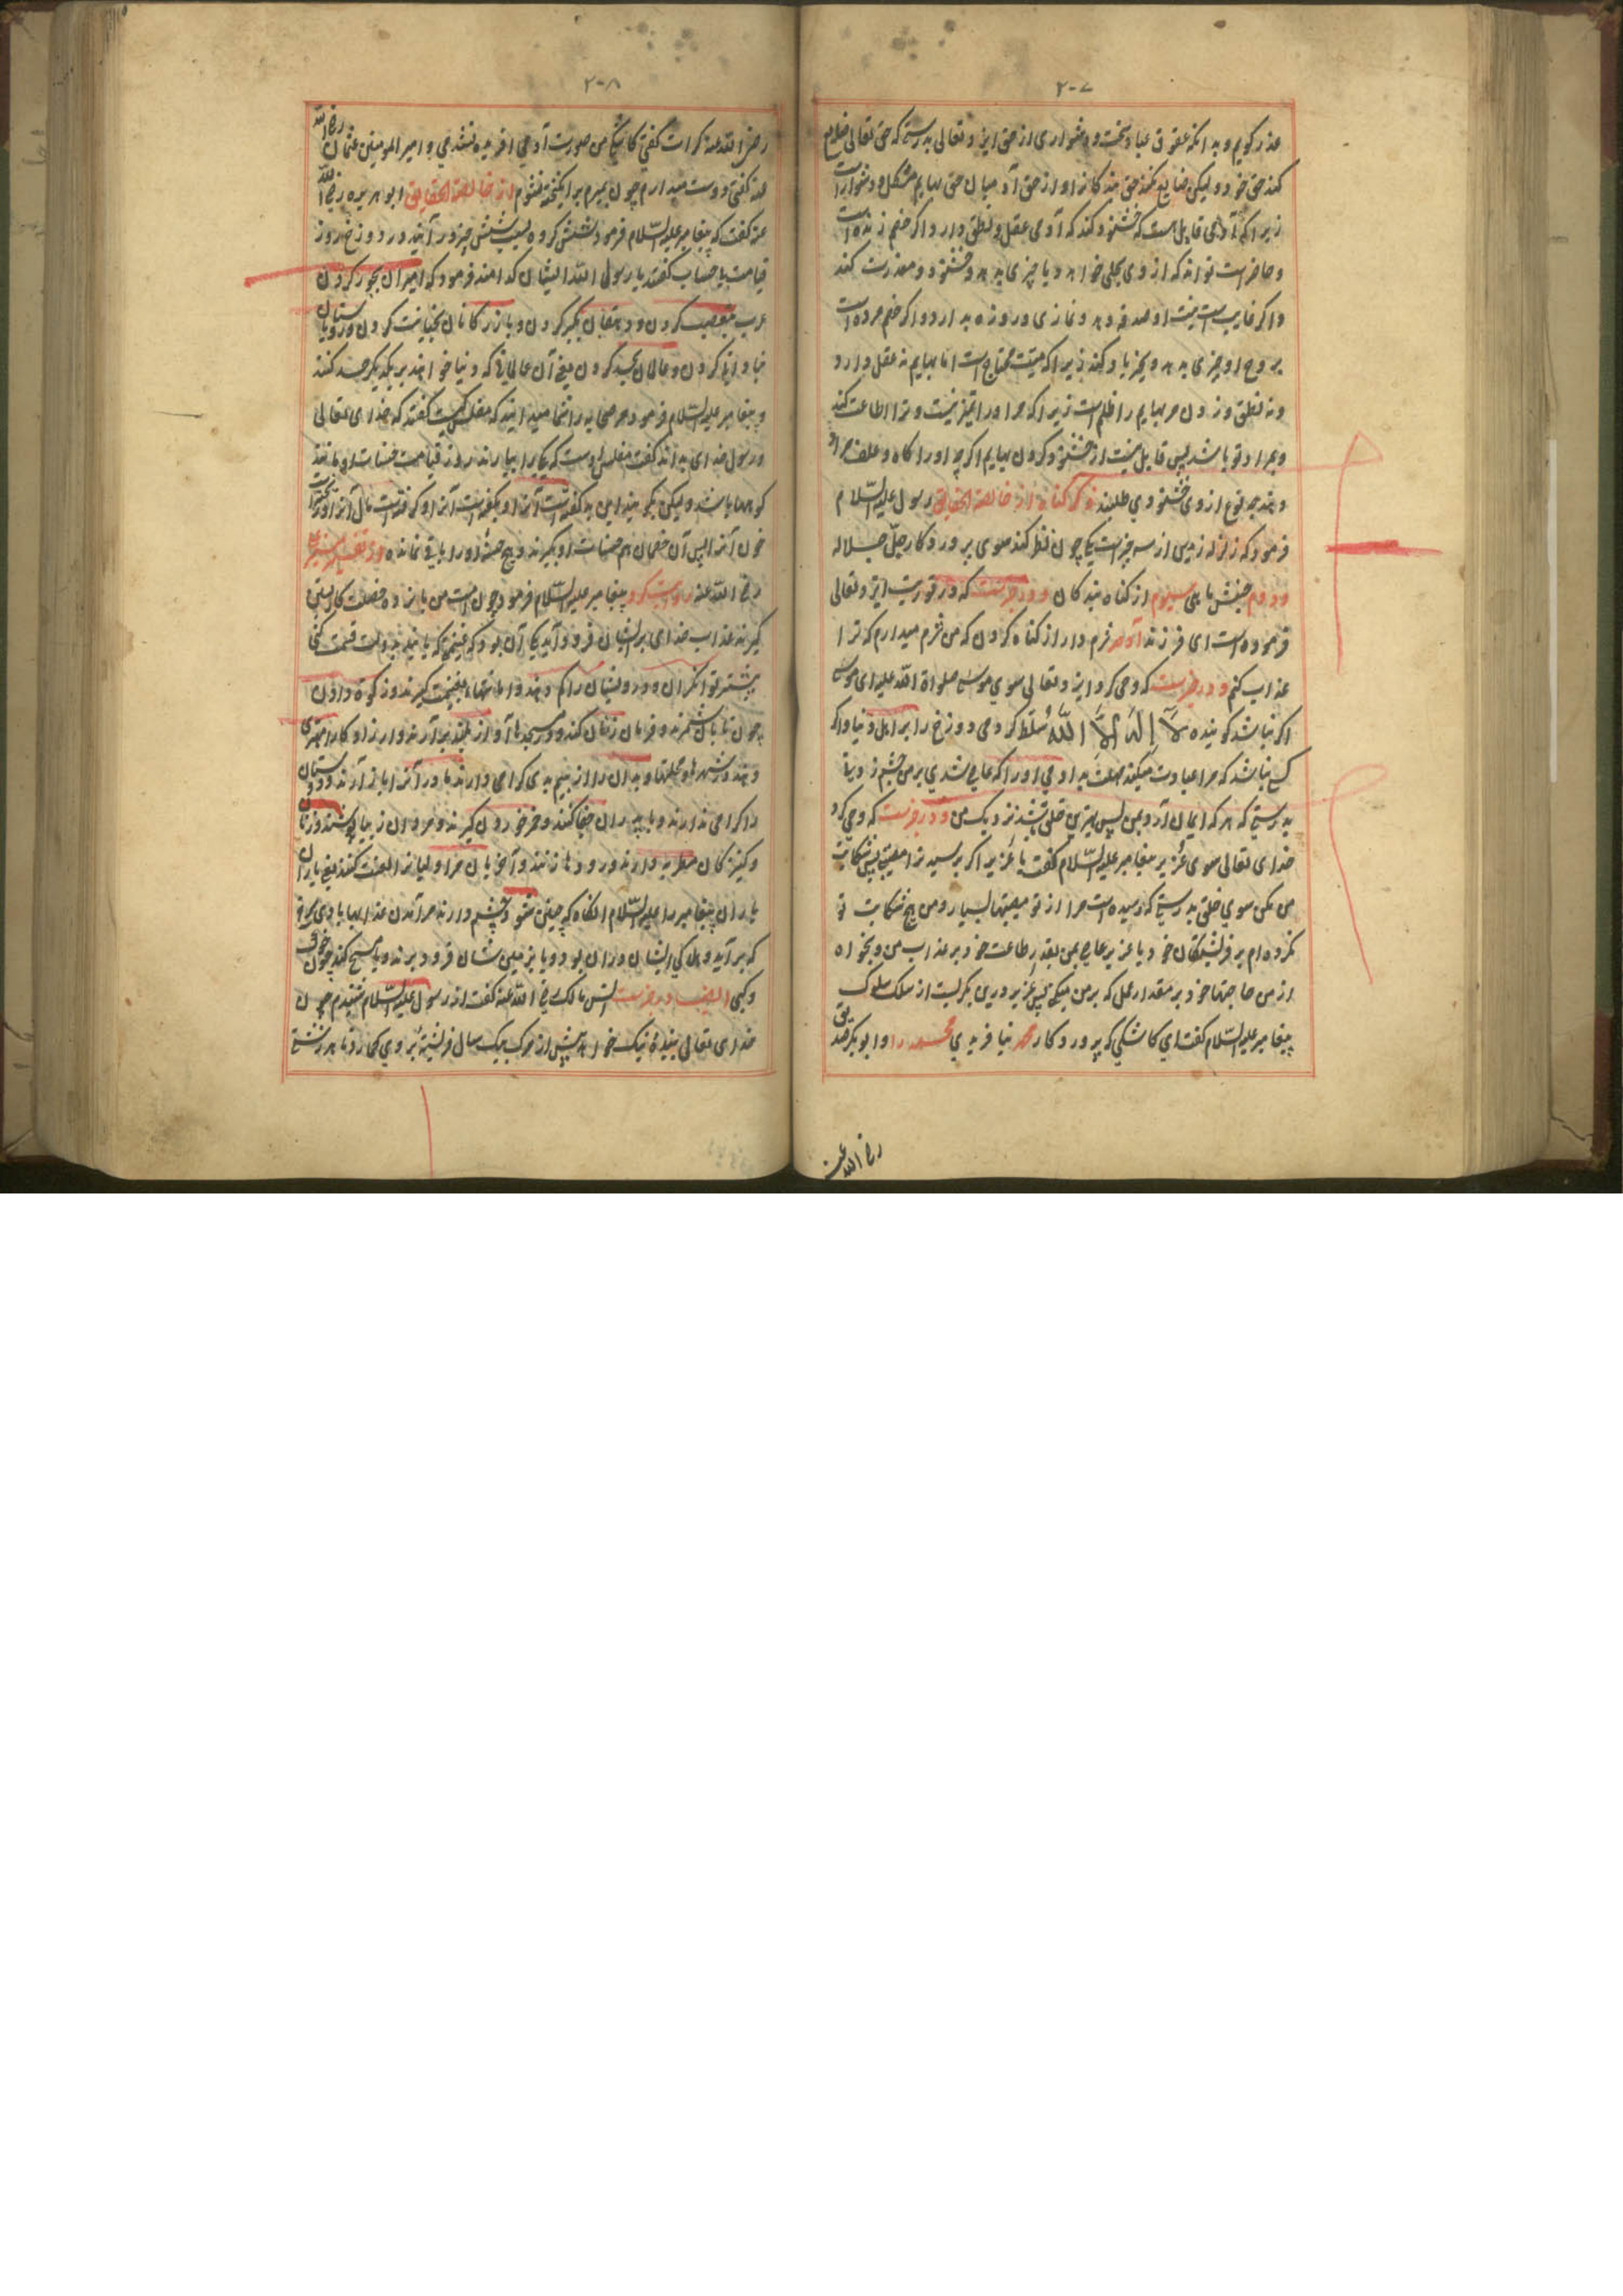 ۲۰۷
عذر کویم و بدانکه عقوق عباد سخت و دشواری از حق ایزد تعالی بدرستی که حق تعالی ضایع
کند حق خود و لیکن ضایع نکند حق بندکانرا و از حق آدمیان حق بهایم مشکل و دشوار است
زیرا که آدمی قابل است که خشنود کند که آدمی عقل و نطق دارد اکر خصم زنده است
و حاضر است تواند که از وی بحلی خواهد و یا چیزی بدهد و خشنود و معذرت کند
و اکر غایب است به نیت او صدقه دهد و نمازی و روزه بدارد و اکر خصم مرده است
بروح او چیزی بدهد و بخیر یاد کند زیرا که میت محتاج است اما بهایم نه عقل دارد
و نه نطق و زدن مر بهایم را ظلم است زیرا که مر او را تمیز نیست و ترا اطاعت کند
و بمراد تو باشد پس قابل نیست از خشنود کردن بهایم اکرچه او را کاه و علف مراد
دهند بچه نوع از وی خشنودی طلبند ذکر کناه از خالصة الحقایق رسول علیه السلام
فرمود که زلزله زمین از سه چیز است یکی چون نظر کند سوی پروردکار جل جلاله
و دوم جنبش ماهی سیوم از کناه بندکان و در خبرست که در توریت ایزد تعالی
فرموده است ای فرزند آدم شرم دار از کناه کردن که من شرم میدارم که ترا
عذاب کنم و در خبرست که وحی کرد ایزد تعالی سوی موسی صلواة الله علیه ای موسی
اکر نباشد کوینده لا اله الا الله مسلط کردمی دوزخ را بر اهل دنیا و اکر
کسی نباشد که مرا عبادت میکند مهلت ندادمی او را که عاصی شدی بر من چشم زدنی
بدرستی که هر که ایمان آرد بمن پس بهترین خلق باشد نزدیک من و در خبرست که وحی کرد
خدای تعالی سوی عزیر پیغامبر علیه السلام کفت یا عزیر اکر برسد ترا مصیبتی پس شکایت
من مکن سوی خلق بدرستی که رسیده است مرا از تو مصیبتها بسیار و من هیچ شکایت تو
نکرده ام بر فرشتکان خود یا عزیر عاصی بمن بقدر طاعت خود بر عذاب من و بخواه
از من حاجتها خود بر مقدار عمل که بر من میکنی پس عزیر در ین بکریست از سلک سلوک
پیغامبر علیه السلام کفت ای کاشکی که پروردکار محمد نیافریدی محمد را و ابوبکر صدیق
رضی الله عنه
۲۰۸
رضی الله عنه کرات کفتی کاشکی من صورت آدمی آفریده نشدمی و امیر المومنین عثمان رضی الله
عنه کفتی دوست میدارم چون بمیرم برانکیخته نشوم از خالصة الحقایق ابو هریره رضی الله
عنه کفت که پیغامبر علیه السلام فرمود شش کروه بسبب شش چیز در آیند در دوزخ روز
قیامت بی حساب کفتند یا رسول الله ایشان کدامند فرمود که امیران بجور کردن
عرب بتعصب کردن و دهقان بکبر کردن و بازرکانان بخیانت کردن و روستایان
و عالمان بحسد کردن یعنی آن عالمانی که دنیا خواهند بر یکدیکر حسد کنند
و پیغامبر علیه السلام فرمود مر صحابه را شما میدانید که مفلس کیست کفتند که خدای تعالی
و رسول خدای بداند کفت مفلس آن است که یکی را بیارند روز قیامت حسنات او مانند
کوهها باشد و لیکن
خون آنرا پس آن خصمان هم حسنات او بکیرند و هیچ حسنه او را باقی نمانده
رضی الله عنه روایت کرد پیغامبر علیه السلام فرمود چون امت من پانزده خصلت کار بستن
کیرند عذاب خدای بر ایشان فرود آید یکی آن بود که غنیمتی که یابند
بیشتر توانکران و درویشان را کم دهند و امانتها بغنیمت کیرند و زکوة دادن
چون تاوان شمرند و فرمان زنان کنند و در مسجدها آواز بلند بر آرند
کرامی ندارند و با پدران جفا کنند و خمر خوردن کیرند و مردان
و کنیزکان مطربه دارند و رودها زنند و آخریان مر اولیان را لعنت کنند یعنی یاران
یاران پیغامبر را علیه السلام آنکاه که چنین شود چشم دارند مر آمدن عذابها بادی سرخ
که بر آید و هلاکی ایشان در آن بود و یا بزمین شان فرود برند و یا مسخ کند
ایضا در خبرست انس مالک رضی الله عنه کفت از رسول علیه السلام شنیدم چون
خدای تعالی ببنده نیک خواهد پیش از مرک بیک سال فرشته بروی کمارد تا مر زشتی